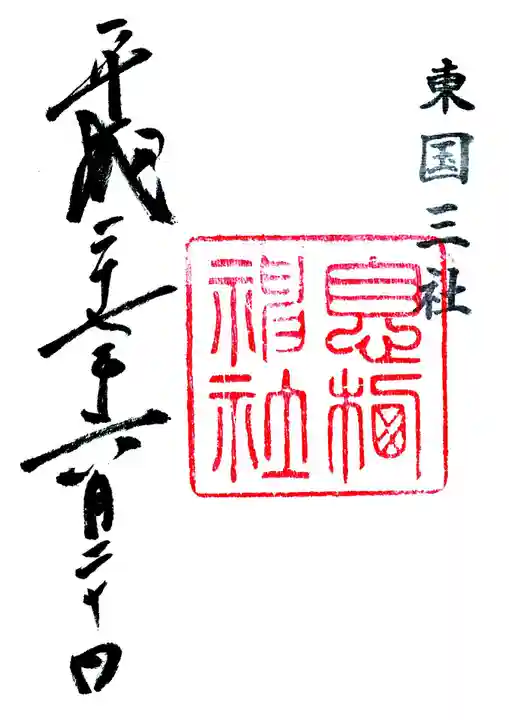 東国三社
息栖
神社
平成二十七年六月二十日